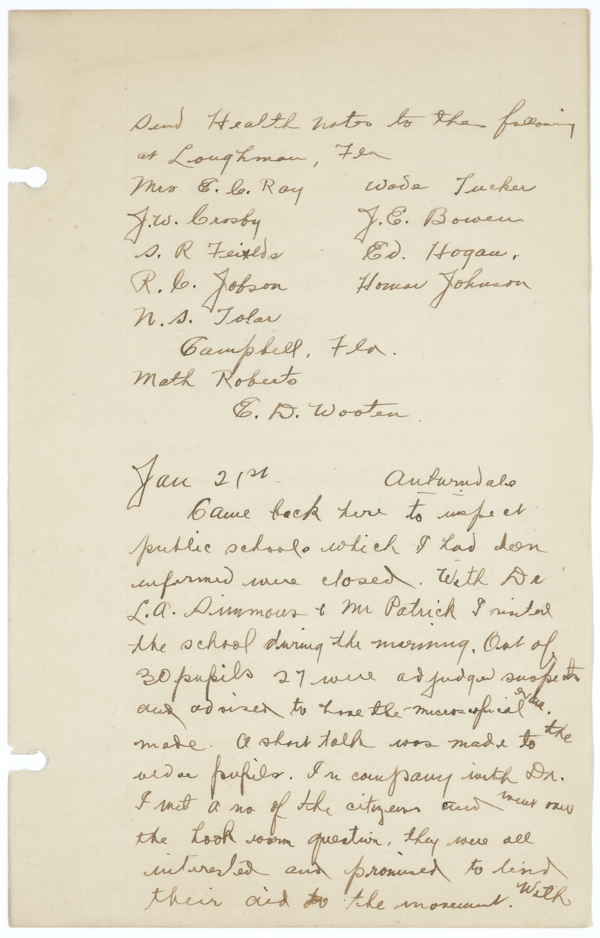 Send Health notes to the following
at Loughman, Fla
Mrs E. C. Ray Wade Tucker
J.W. Crosby J.E. Bowen
S. R Feixlds Ed. Hogan.
R. C. Jobson Homer Johnson
N. S. Tolar
Campbell, Fla.
Math Roberts
E. D. Wooten.
Jan 21st Auburndale
Came back here to inspect
public schools which I had been
informed were closed. With Dr
L.A. Simmons & Mr Patrick I visited
the school during the morning. Out of
30 pupils 27 were adjudged suspects
and advised to have the microscopical exam.
made. A short talk was made to the
older pupils. In company with Dr.
I met a no of the citizens and went over
the hook worm question. they were all
interested and promised to lend
their aid to the movement. With